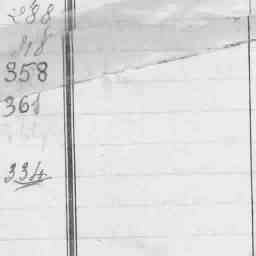 288
318
358
361
334